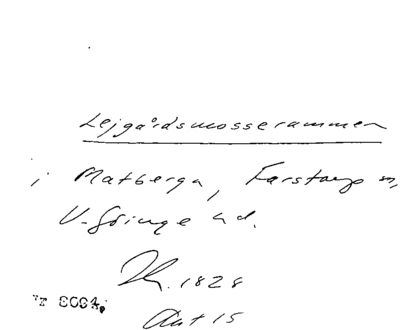 Lejgårdsmosserammen
i Matberga, Farstorp sn,
V-Göinge hd.
1828
Akt 15